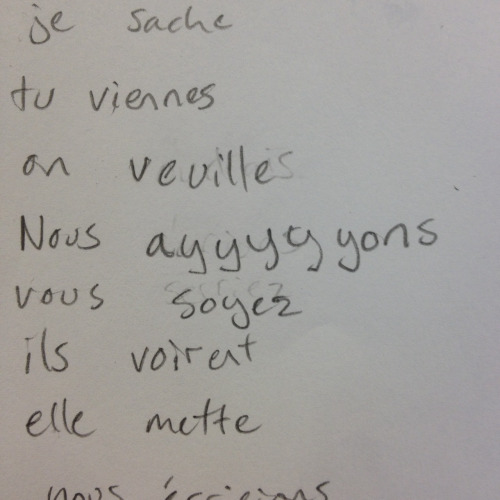 je sache
tu viennes
on veuilles
Nous ayyyyyons
vous soyez
ils voirent
elle mette
nous écrivions